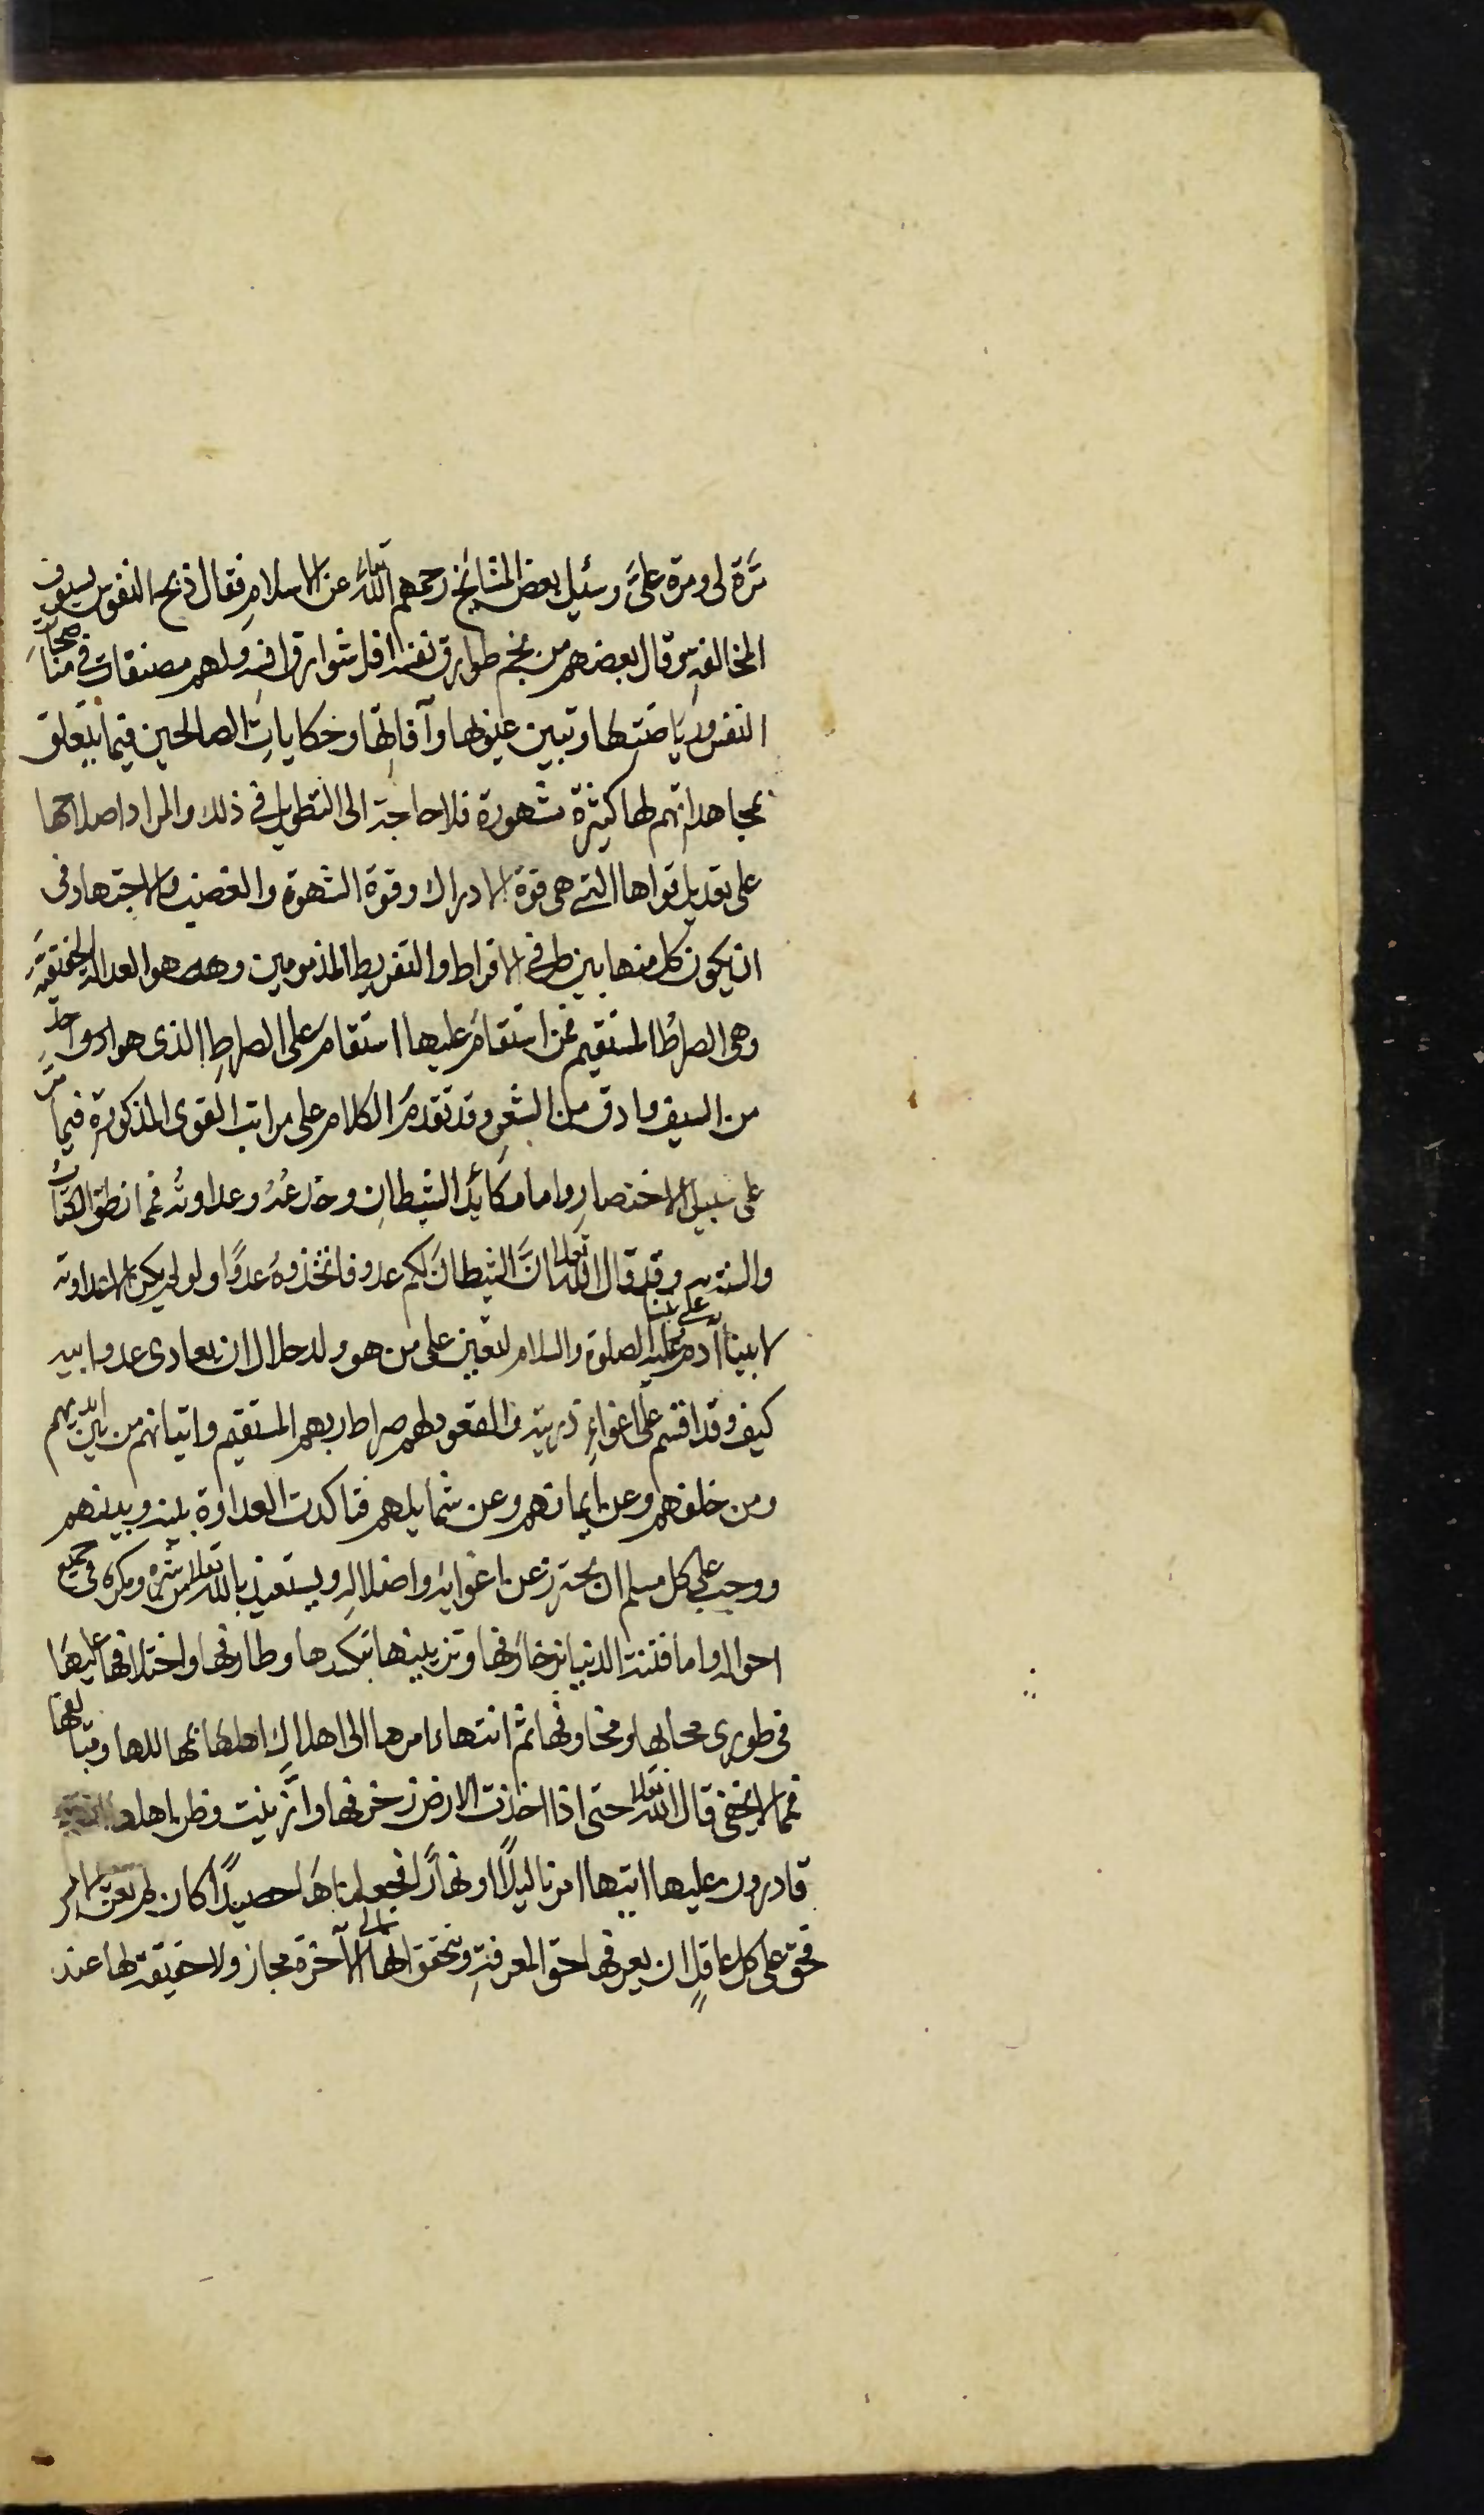 مرّة لى ومرة علىّ وسئيل بعض المشايخ رحمهم الله تعالى عن الاسلام فقال ذبح النفوس بسيوف
المخالفة وقال بعضهم من نجم طوارق نفسه افل شوارق انسه ولهم مصنفات فى
النفس ورياضتها وتبين عيوبها وآفاتها وحكايات الصالحين فيما يتعلق
بمجاهداتهم لها كثيرة مشهورة فلا حاجة الى التطويل فى ذلك والمراد اصلاحها
على تعديل قواها التى هى قوة الادراك وقوة الشهوة والغضب والاجتهاد فى
ان يكون كل منها بين طرفى الافراط والتفريط المذمومين وهذه هو العدالة الحقيقية
وهى الصراط المستقيم فمن استقام عليها استقام على الصراط الذى هو احد
من السيف وادق من الشعر وقد تقدم الكلام على مراتب القوى المذكورة فيما مر
على سبيل الاختصار واما مكائد الشيطان وخدعه وعداوته فمما نطق الكتاب
والسنة به وقد قال الله تعالى انّ الشيطان لكم عدو فاتخذوه عدوًّا ولو لم يكن الا عداوته
لابينا آدم على نبينا وعليه الصلوة والسلام لتعين على من هو ولد حلال ان يعادى عدو ابيه
كيف وقد اقسم على اغواء ذريته والقعود لهم صراط ربهم المستقيم واتيانهم من بين ايديهم
ومن خلفهم وعن ايمانهم وعن شمايلهم فتاكدت العداوة بينه وبينهم
ووجب على كل مسلم ان يحترز عن اغوايه واضلاله ويستعيذ بالله تعالى من شره ومكره فى جميع
احواله واما فتنة الدنيا بزخارفها وتزيينها واختلافها عليها
فى طورى محابها ومخاوفها ثم انتهاء امرها الى اهلاك اهلها
فمما لا يخفى قال الله تعالى حتى اذا اخذت الارض زخرفها وازّينت وظن اهلها انهم
قادرون عليها اتيها امرنا ليلًا او نهارًا فجعلناها حصيدًا كان لم تغن بالامس
فحق على كل عاقلٍ ان يعرفها حق المعرفة ويتحقق انها الى الآخرة مجاز ولا حقيقة لها عند